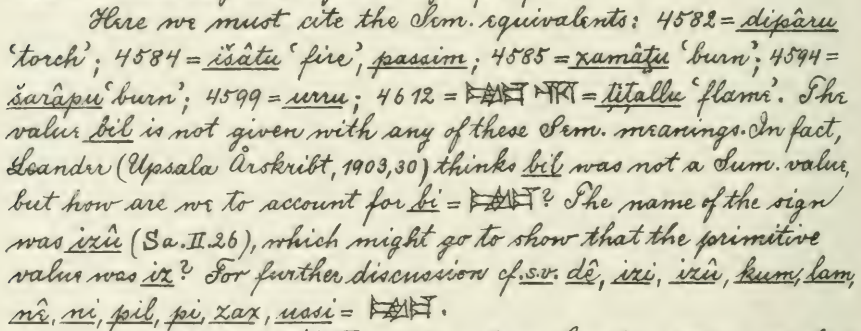 Here we must cite the Sem. equivalents: 4582 = dipâru
'torch'; 4584 = išâtu 'fire', passim; 4585 = xamâṭu 'burn'; 4594 =
šarâpu 'burn'; 4599 = urru; 4612 = = ṭiṭallu 'flame'. The
value bil is not given with any of these Sem. meanings. In fact,
Leander (Upsala Årskribt, 1903, 30) thinks bil was not a Sum. value,
but how are we to account for bi = ? The name of the sign
was izû (Sa. II. 26), which might go to show that the primitive
value was iz? For further discussion cf. s.v. dê, izi, izû, kum, lam,
nê, ni, pil, pi, zax, ussi = .